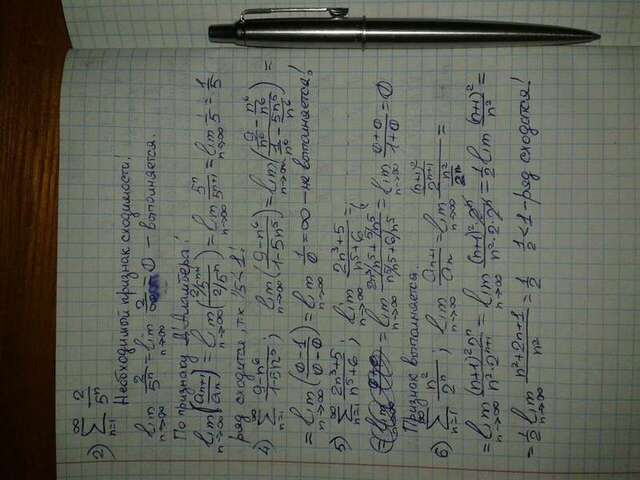 2) ∑_{n=1}^{∞} 2/5ⁿ
Необходимый признак сходимости.
lim_{n→∞} 2/5ⁿ = lim_{n→∞} 2/∞ = 0 – выполняется.
По признаку Д'Аламбера:
lim_{n→∞} (aₙ₊₁/aₙ) = lim_{n→∞} (2/5ⁿ⁺¹ / 2/5ⁿ) = lim_{n→∞} 5ⁿ/5ⁿ⁺¹ = lim_{n→∞} 1/5 = 1/5
ряд сходится, т.к 1/5 < 1!
4) ∑_{n=1}^{∞} (9-n⁶)/(1-5n⁵); lim_{n→∞} ((9-n⁶)/(1-5n⁵)) = lim_{n→∞} ((9/n⁶ - n⁶/n⁶)/(1/n⁶ - 5n⁵/n⁶)) =
= lim_{n→∞} ((0-1)/(0-0)) = lim_{n→∞} 1/0 = ∞ – не выполняется!
5) ∑_{n=1}^{∞} (2n³+5)/(n⁵+6); lim_{n→∞} (2n³+5)/(n⁵+6) =
= lim_{n→∞} (2n³/n⁵ + 5/n⁵)/(n⁵/n⁵ + 6/n⁵) = lim_{n→∞} (0+0)/(1+0) = 0
Признак выполняется.
6) ∑_{n=1}^{∞} n²/2ⁿ; lim_{n→∞} aₙ₊₁/aₙ = lim_{n→∞} ((n+1)²/2ⁿ⁺¹)/(n²/2ⁿ) =
= lim_{n→∞} (n+1)²·2ⁿ/(n²·2ⁿ⁺¹) = lim_{n→∞} (n+1)²·2ⁿ/(n²·2·2ⁿ) = 1/2 lim_{n→∞} (n+1)²/n² =
= 1/2 lim_{n→∞} (n²+2n+1)/n² = 1/2 1/2 < 1 - ряд сходится!